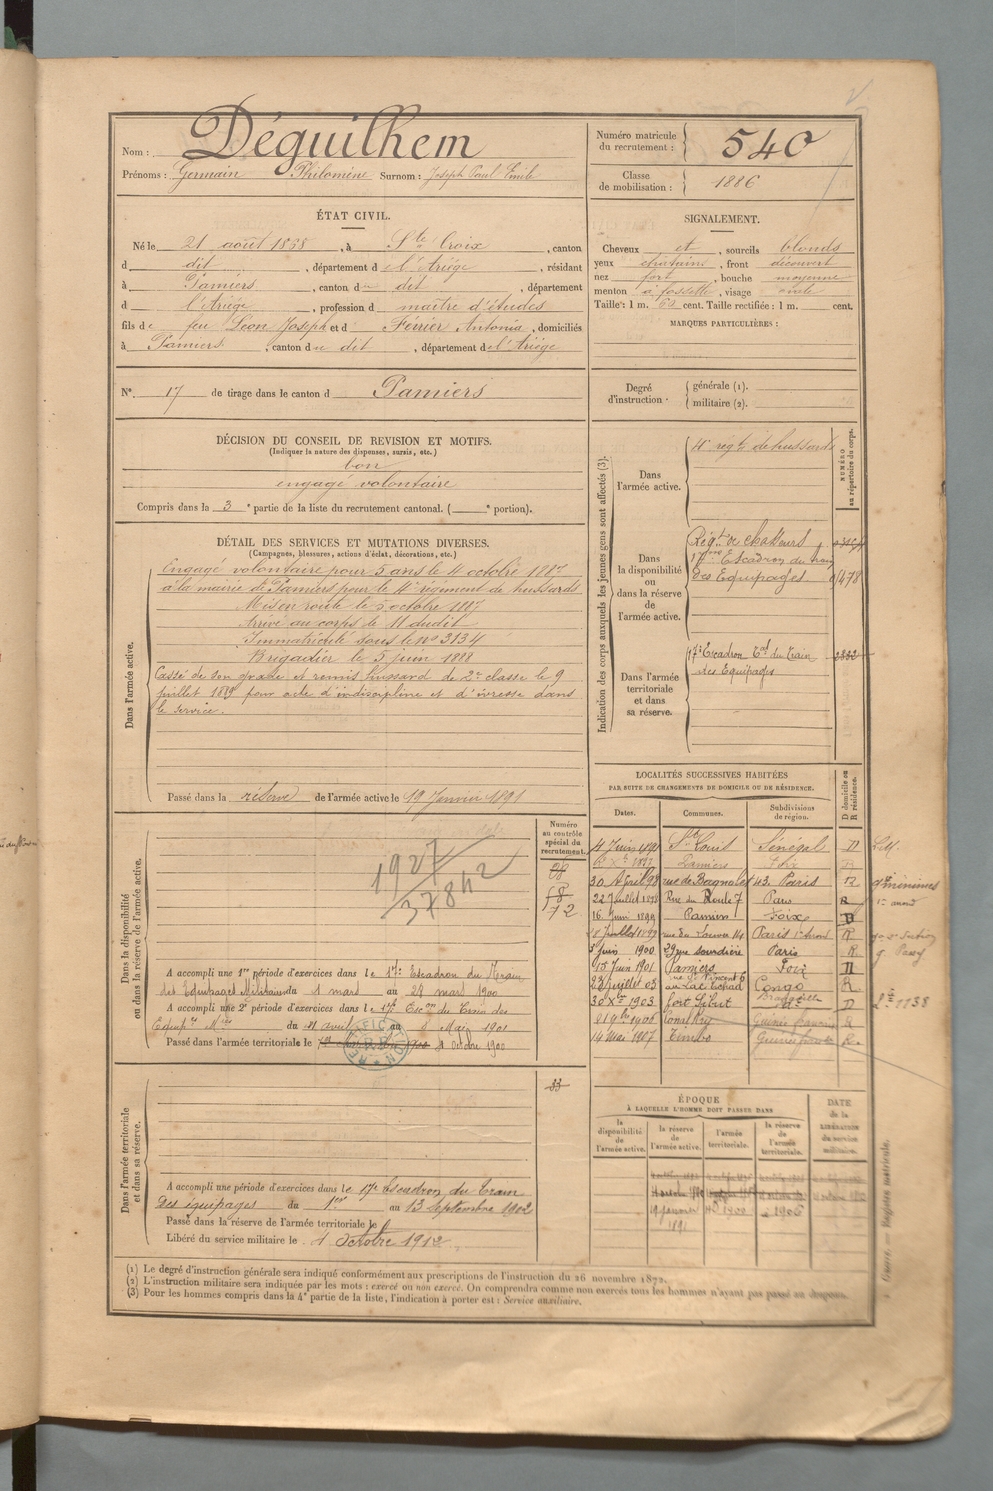 Nom : Déguilhem
Prénoms : Germain Philomène Surnom : Joseph Paul Emile
Numéro matricule du recrutement : 540
Classe de mobilisation : 1886
ÉTAT CIVIL.
Né le 21 août 1868, à Ste Croix, canton
d dit, département de l'Ariége, résidant
à Pamiers, canton du dit, département
d l'Ariège, profession de maître d'études
fils de feu Léon Joseph et d Ferrier Antonia, domiciliés
à Pamiers, canton du dit, département de l'Ariége
SIGNALEMENT.
Cheveux et, sourcils blonds
yeux chatains, front découvert
nez fort, bouche moyenne
menton à fossette, visage ovale
Taille : 1 m. 63 cent. Taille rectifiée : 1 m. cent.
MARQUES PARTICULIÈRES :
N° 17 de tirage dans le canton d Pamiers
Degré d'instruction. générale (1).
militaire (2).
DÉCISION DU CONSEIL DE REVISION ET MOTIFS.
(Indiquer la nature des dispenses, sursis, etc.)
bon
engagé volontaire
Compris dans la 3e partie de la liste du recrutement cantonal. ( e portion).
DÉTAIL DES SERVICES ET MUTATIONS DIVERSES.
(Campagnes, blessures, actions d'éclat, décorations, etc.)
Dans l'armée active.
Engagé volontaire pour 5 ans le 4 octobre 1887
à la mairie de Pamiers pour le 4e régiment de hussards
Mis en route le 5 octobre 1887
Arrivé au corps le 11 dudit
Immatriculé sous le no 3134
Brigadier le 5 juin 1888
Cassé de son grade et remis hussard de 2e classe le 9
juillet 1889 pour acte d'indiscipline et d'ivresse dans
le service.
Passé dans la réserve de l'armée active le 19 Janvier 1891
Indication des corps auxquels les jeunes gens sont affectés (3).
NUMÉRO au répertoire du corps.
Dans l'armée active.
4e régt de hussards
Dans la disponibilité ou dans la réserve de l'armée active.
Régt de chasseurs
17me Escadron du train
des Equipages 1478
Dans l'armée territoriale et dans sa réserve.
17e Escadron Tal du Train 2832
des Equipages
Numéro au contrôle spécial du recrutement.
58
72
Dans la disponibilité ou dans la réserve de l'armée active.
1927
37842
A accompli une 1re période d'exercices dans le 17e Escadron du Train
des Equipages Militaires du 1 mars au 28 mars 1900
A accompli une 2e période d'exercices dans le 17e Escon du Train des
Equipes Mres du 11 avril au 8 Mai 1901
Passé dans l'armée territoriale le 1 Octobre 1900
LOCALITÉS SUCCESSIVES HABITÉES
PAR SUITE DE CHANGEMENTS DE DOMICILE OU DE RÉSIDENCE.
Dates. Communes. Subdivisions de région. D domicile ou R résidence.
4 Juin 1891 St Louis Sénégal D
Pamiers Foix
30 Avril 98 rue de Bagnolet 43. Paris R
22 Juillet 1898 Rue du Roule 7 Paris R
16 Juin 1899 Pamiers Foix D
8 Juillet 1899 rue du Louvre 14 Paris R
5 Juin 1900 29 rue Sourdière Paris R
15 Juin 1901 Pamiers Foix D
rue St Vincent 6
23 juillet 03 au Lac Tchad Congo R
30 Xre 1903 fort Sibut D
9bre 1906 Conakry Guinée française R
14 Mai 1907 Timbo Guinée R
Dans l'armée territoriale et dans sa réserve.
33
A accompli une période d'exercices dans le 17e Escadron du Train
Des équipages du 1er au 13 Septembre 1902
Passé dans la réserve de l'armée territoriale le
Libéré du service militaire le 1 Octobre 1912
ÉPOQUE
À LAQUELLE L'HOMME DOIT PASSER DANS
la disponibilité de l'armée active. la réserve de l'armée active. l'armée territoriale. la réserve de l'armée territoriale.
DATE de la LIBÉRATION du service militaire.
19 janvier 1891 1900 1906
(1) Le degré d'instruction générale sera indiqué conformément aux prescriptions de l'instruction du 26 novembre 1872.
(2) L'instruction militaire sera indiquée par les mots : exercé ou non exercé. On comprendra comme non exercés tous les hommes n'ayant pas passé au drapeau.
(3) Pour les hommes compris dans la 4e partie de la liste, l'indication à porter est : Service auxiliaire.